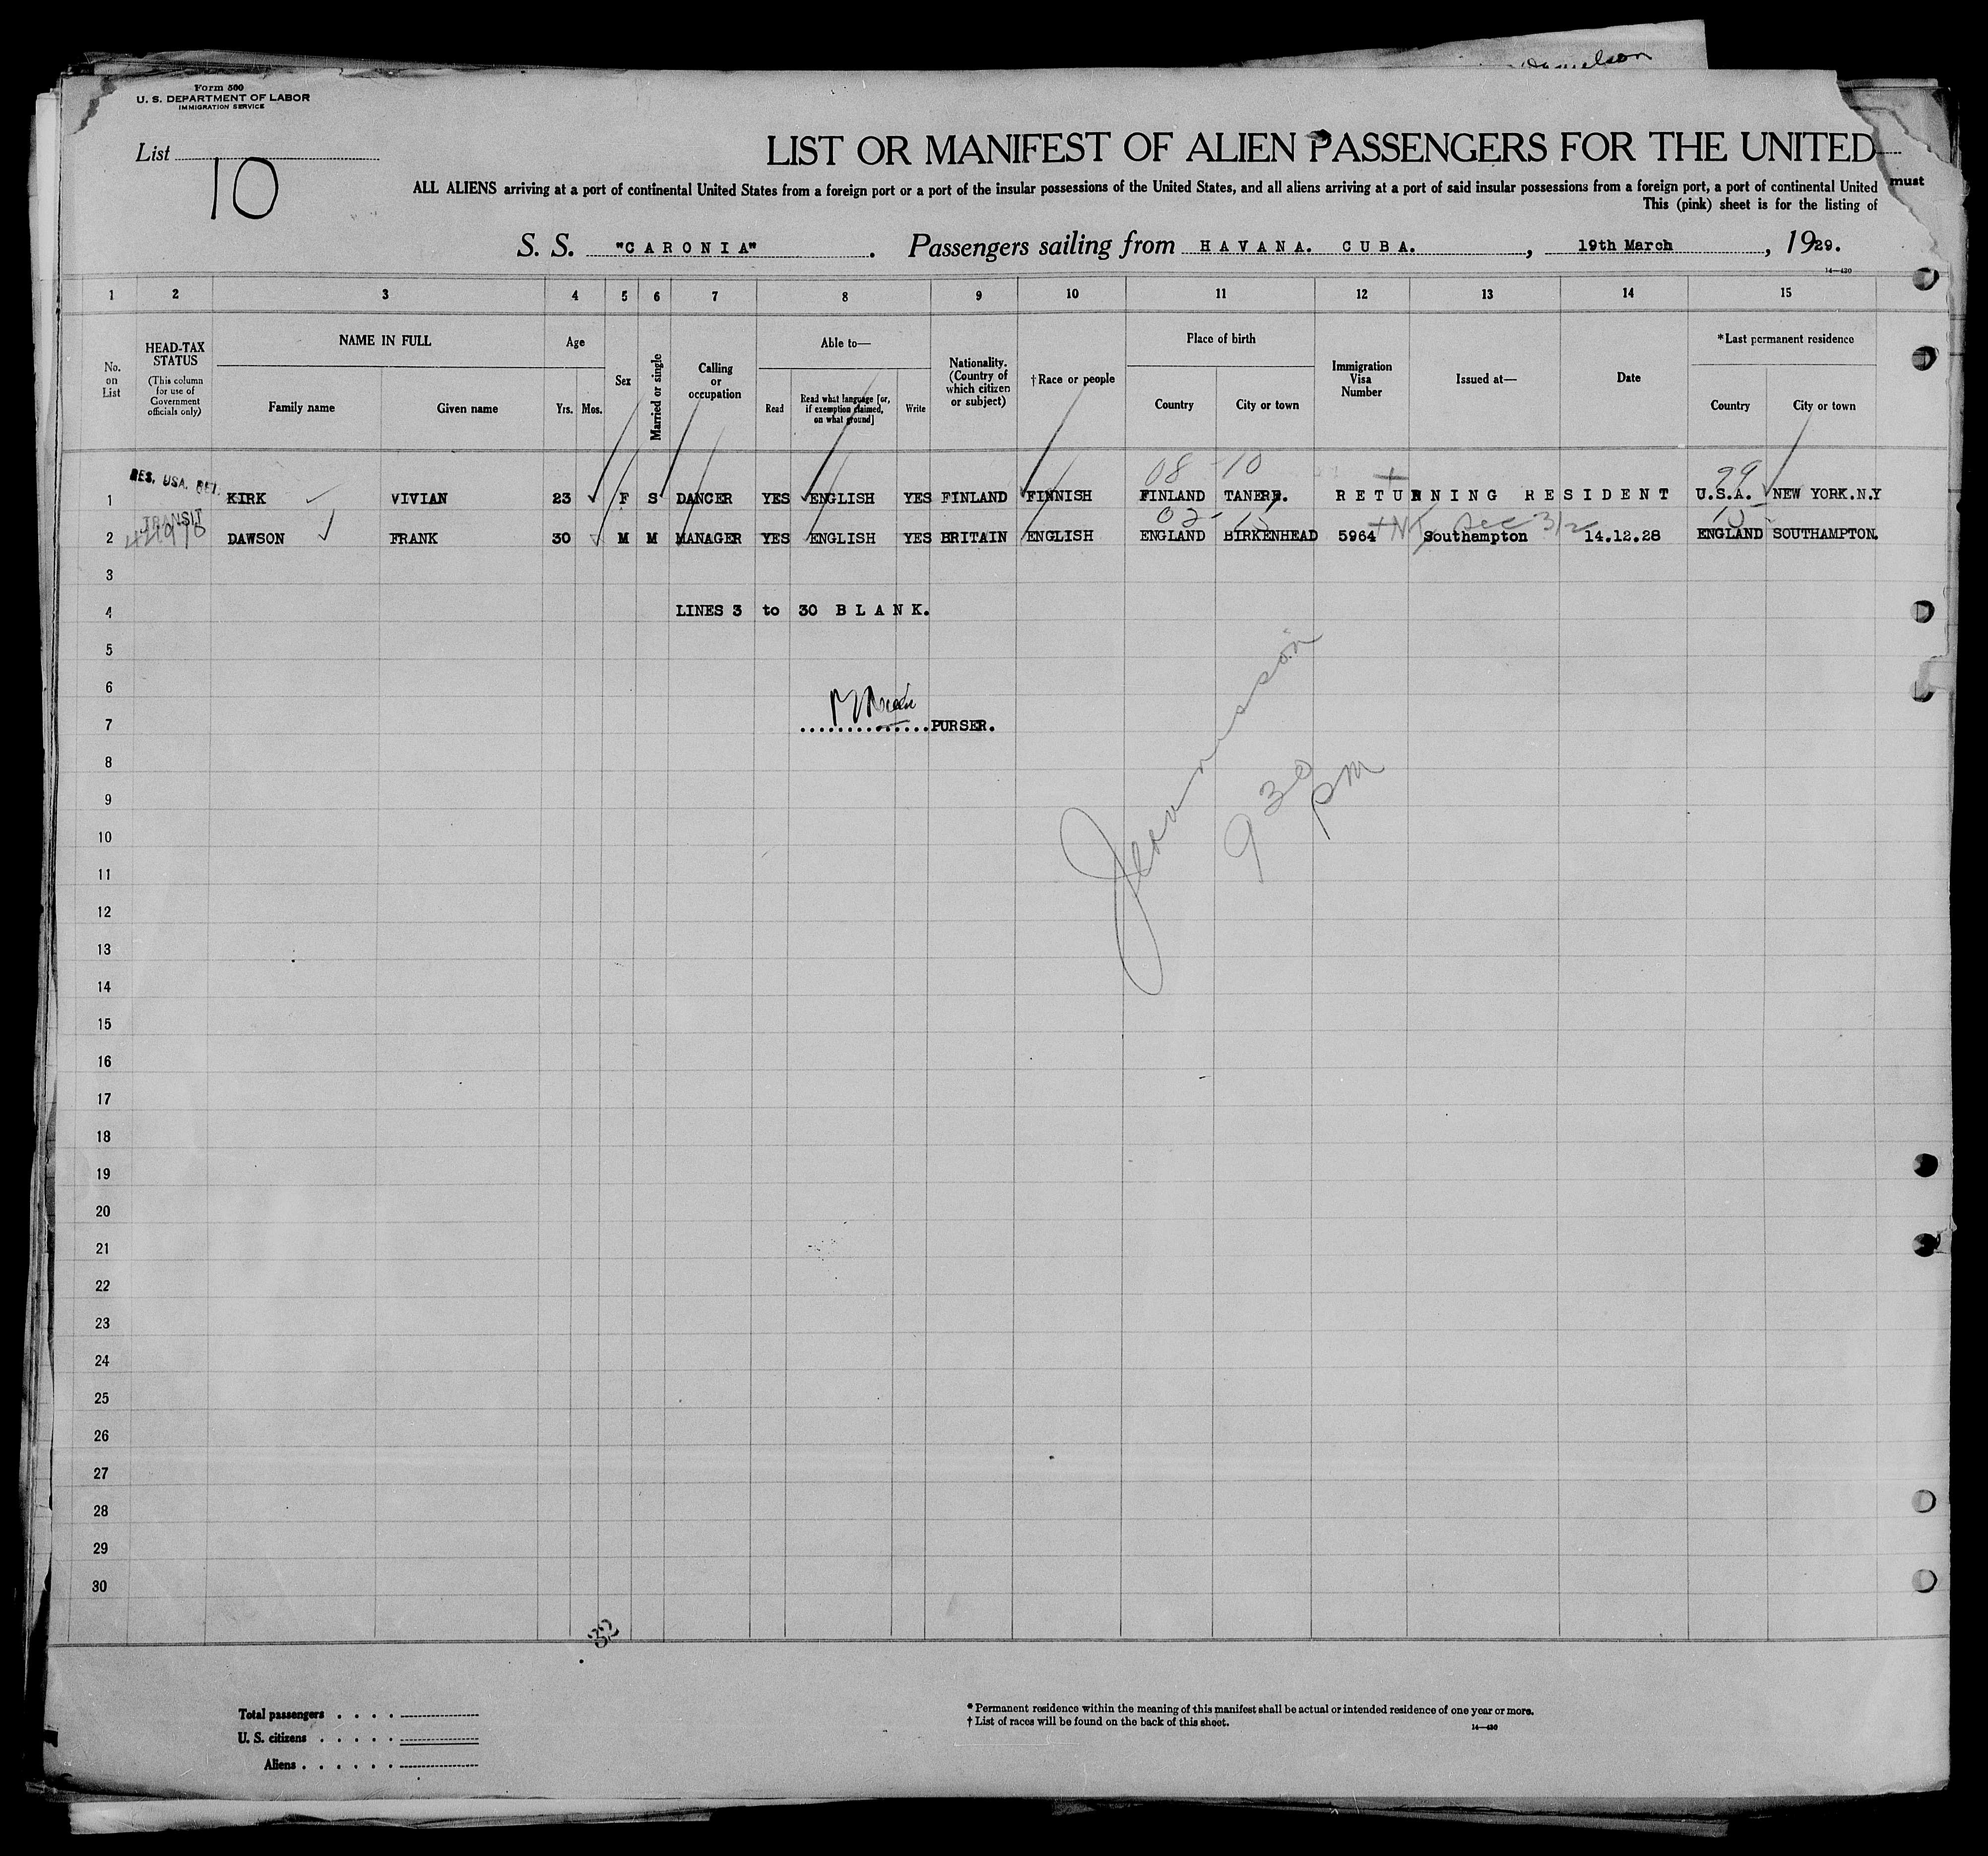 Danielson
Form 500
U. S. DEPARTMENT OF LABOR
IMMIGRATION SERVICE
List
10
LIST OR MANIFEST OF ALIEN PASSENGERS FOR THE UNITED
ALL ALIENS arriving at a port of continental United States from a foreign port or a port of the insular possessions of the United States, and all aliens arriving at a port of said insular possessions from a foreign port, a port of continental United must
This (pink) sheet is for the listing of
S. S. "CARONIA". Passengers sailing from HAVANA. CUBA., 19th March, 1929.
14—430
1 2 3 4 5 6 7 8 9 10 11 12 13 14 15
No. on List
HEAD-TAX STATUS (This column for use of Government officials only)
NAME IN FULL Family name Given name
Age Yrs. Mos.
Sex
Married or single
Calling or occupation
Able to— Read Read what language [or, if exemption claimed, on what ground] Write
Nationality. (Country of which citizen or subject)
†Race or people
Place of birth Country City or town
Immigration Visa Number
Issued at—
Date
*Last permanent residence Country City or town
08 -10 29
1 RES. USA. RET. KIRK VIVIAN 23 F S DANCER YES ENGLISH YES FINLAND FINNISH FINLAND TANERF. RETURNING RESIDENT U.S.A. NEW YORK.N.Y
02- 15 15
2 TRANSIT DAWSON FRANK 30 M M MANAGER YES ENGLISH YES BRITAIN ENGLISH ENGLAND BIRKENHEAD 5964 Southampton 14.12.28 ENGLAND SOUTHAMPTON.
3
4 LINES 3 to 30 BLANK.
5
6
7 ..............PURSER.
8
9
10
11
12
13
14
15
16
17
18
19
20
21
22
23
24
25
26
27
28
29
30
9 30 pm
32
Total passengers . . . .
U. S. citizens . . . . .
Aliens . . . . . .
* Permanent residence within the meaning of this manifest shall be actual or intended residence of one year or more.
† List of races will be found on the back of this sheet.
14—430